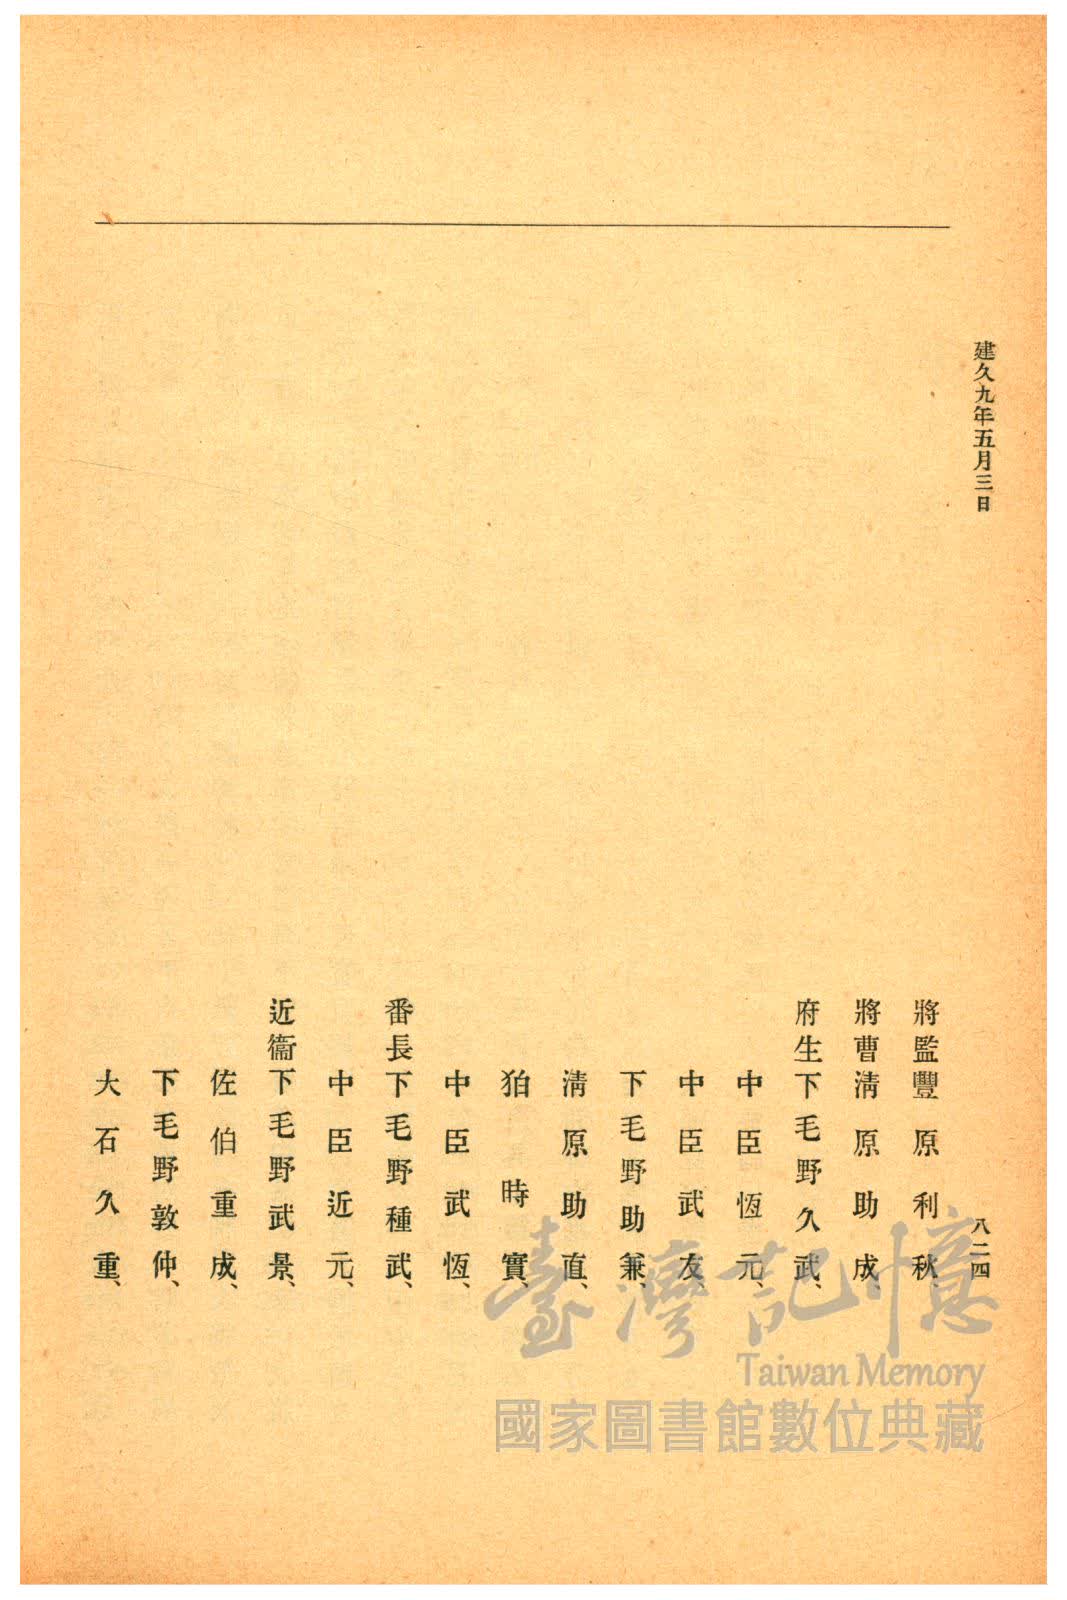 建久九年五月三日
八二四
將監豐原利秋、
將曹淸原助成、
府生下毛野久武、
中臣恆元、
中臣武友、
下毛野助兼、
淸原助直、
狛時實、
中臣武恆、
番長下毛野種武、
中臣近元、
近衞下毛野武景、
佐伯重成、
下毛野敦仲、
大石久重、
臺灣記憶
Taiwan Memory
國家圖書館數位典藏